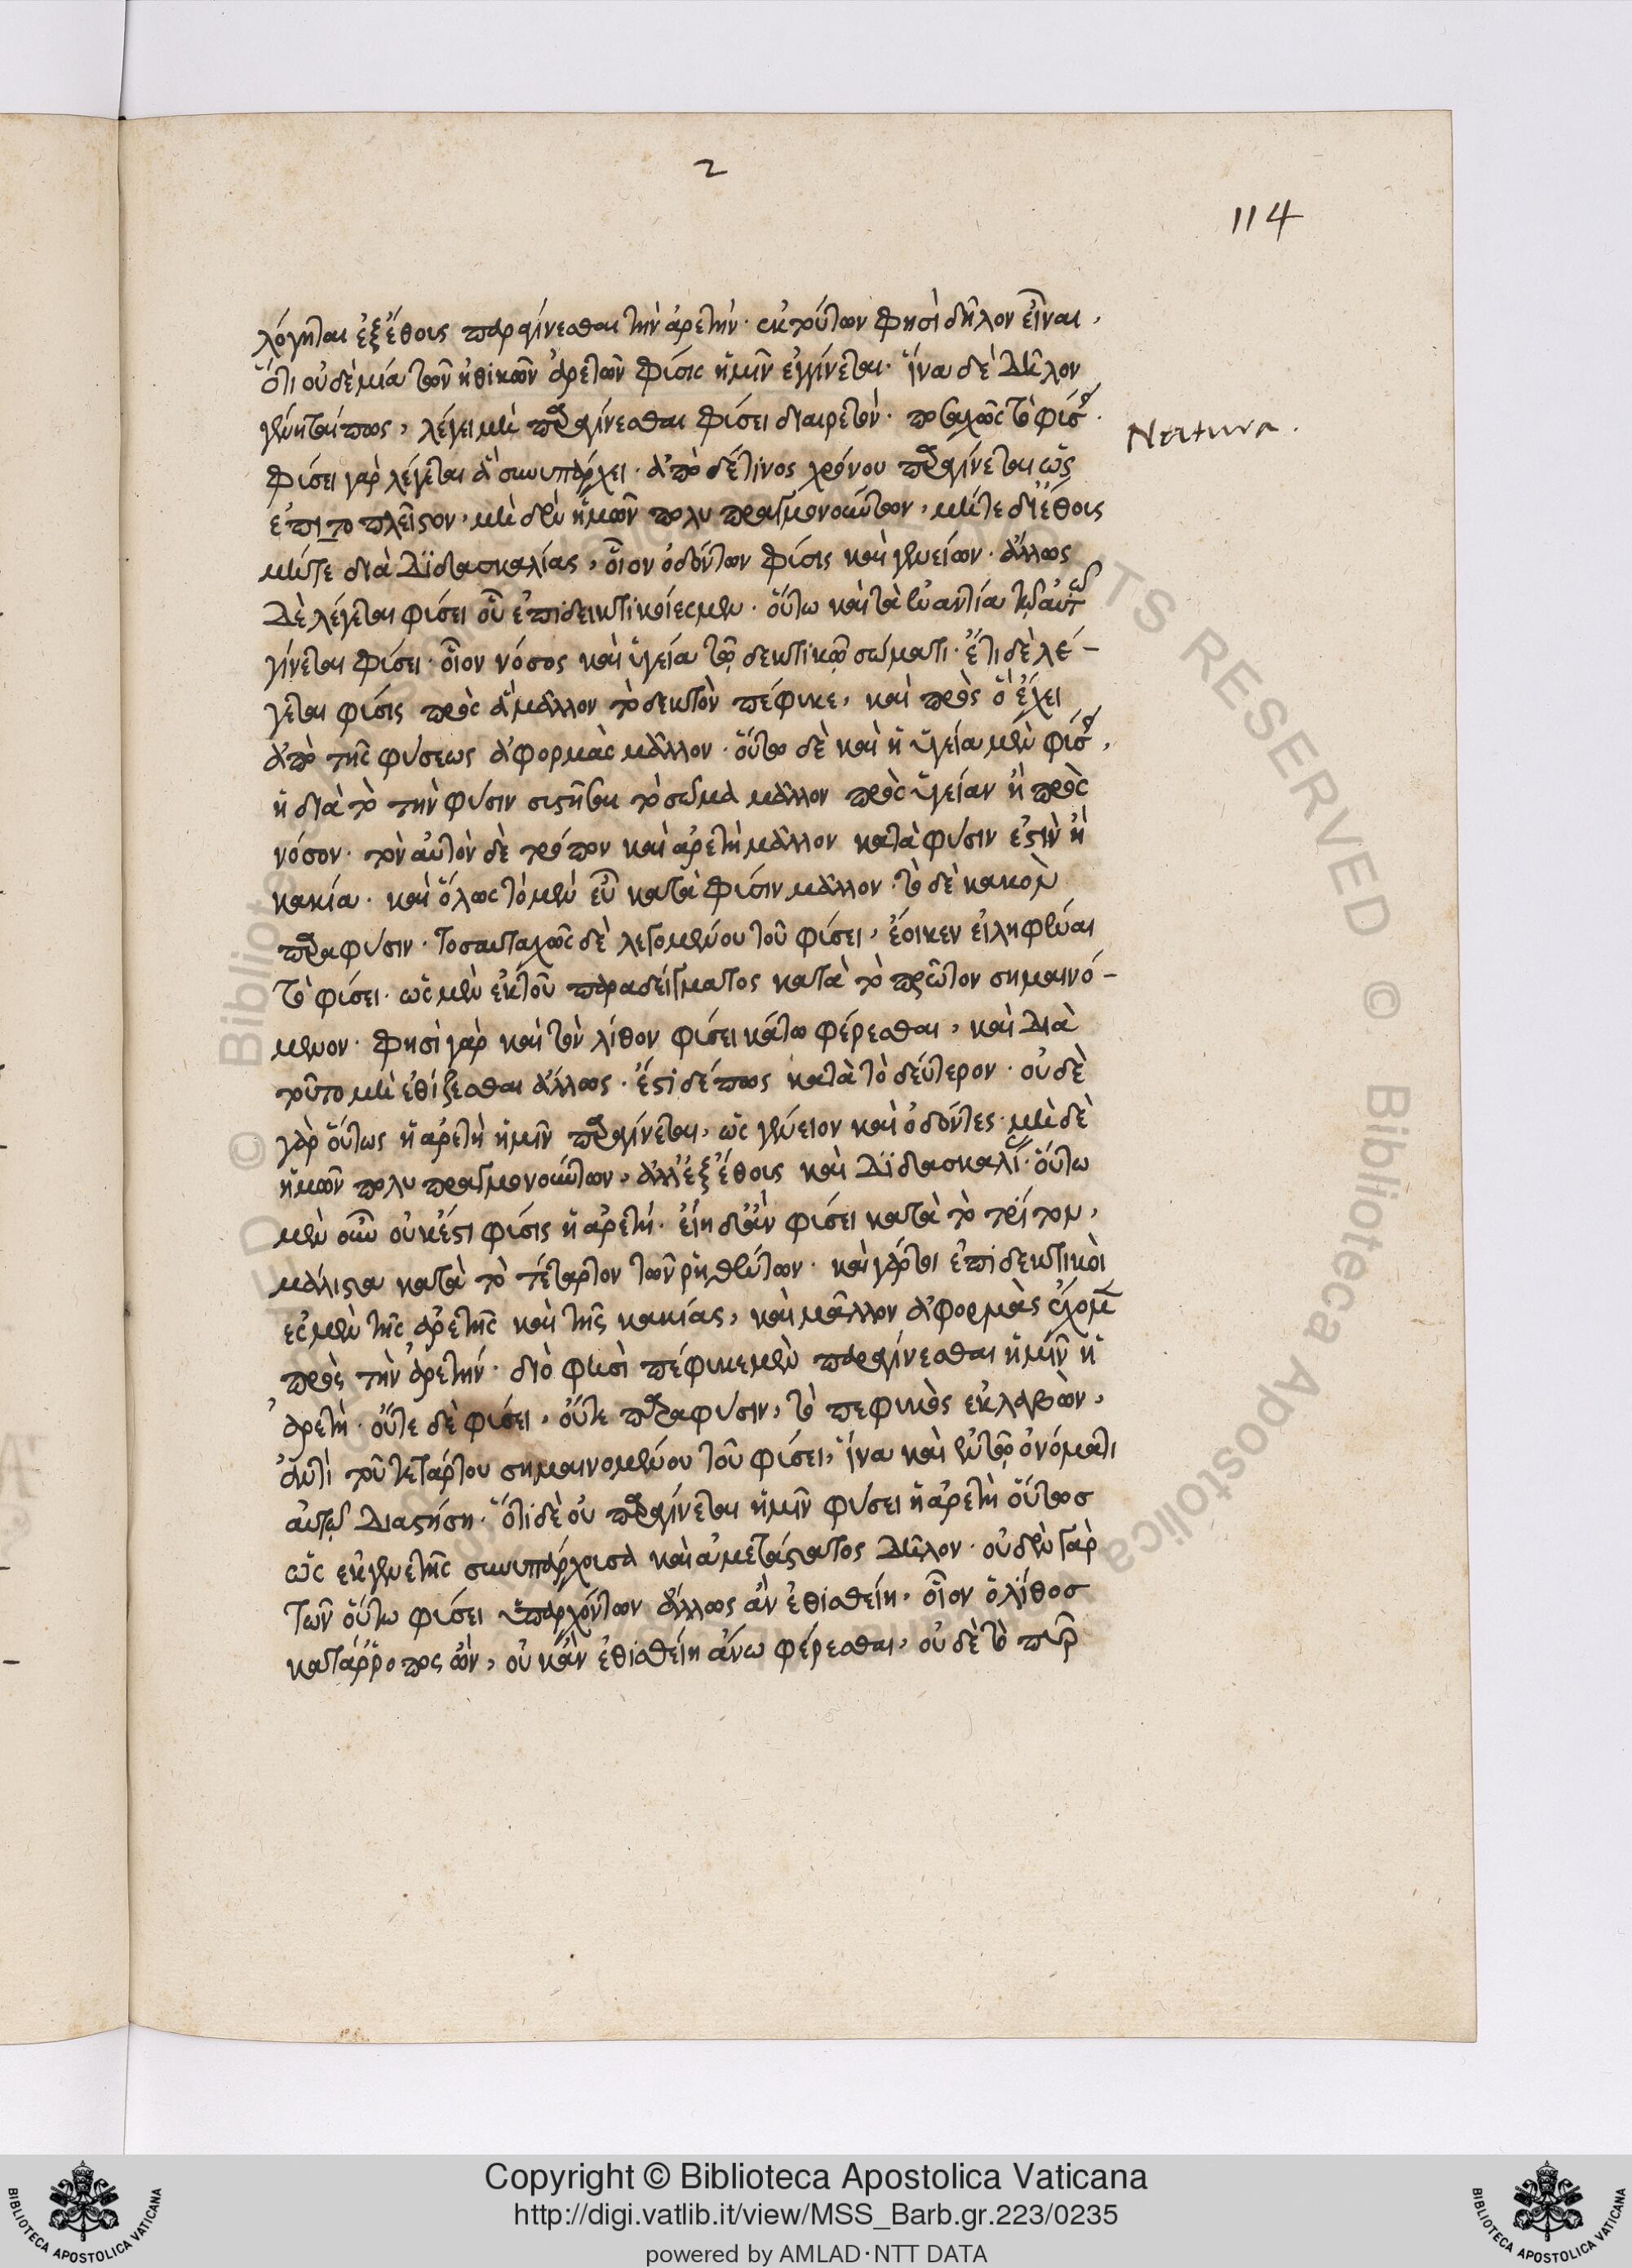 2
114
λόγηται ἐξ ἔθους παραγίνεσθαι τὴν ἀρετήν· ἐκ τούτων φησὶ δῆλον εἶναι,
ὅτι οὐδὲ μία τῶν ἠθικῶν ἀρετῶν φύσις ἡμῖν ἐγγίνεται· ἵνα δὲ δῆλον
γένηται πως, λέγει μὴ παραγίνεσθαι φύσει διαιρετόν· ποσαχῶς τὸ φύσει·
Natura.
φύσει γὰρ λέγεται ἃ συνυπάρχει· ἀπὸ δέ τινος χρόνου παραγίνεται ὡς
ἐπι το πλεῖστον, μὴ δὲν ἡμῶν πολυπραγμονούντων, μήτε δι' ἔθους
μήτε διὰ διδασκαλίας, οἷον ὀδόντων φύσις καὶ γενείων· ἄλλως
δὲ λέγεται φύσει οὗ ἐπιδεικτικοί ἐσμεν· οὕτω καὶ τὰ ἐναντία τῷ αὐτῷ
γίνεται φύσει· οἷον νόσος καὶ ὑγεία τῷ δεκτικῷ σώματι· ἔτι δὲ λέ-
γεται φύσις πρὸς ἃ μᾶλλον τὸ δεκτὸν πέφυκε, καὶ πρὸς ὃ ἔχει
ἀπὸ τῆς φύσεως ἀφορμὰς μᾶλλον· οὕτω δὲ καὶ ἡ ὑγεία μὲν φύσει,
ἢ διὰ τὸ τὴν φύσιν τὸ σῶμα μᾶλλον πρὸς ὑγείαν ἢ πρὸς
νόσον· τὸν αὐτὸν δὲ τρόπον καὶ ἀρετὴ μᾶλλον κατὰ φύσιν ἐστὶν ἢ
κακία· καὶ ὅλως τὸ μὲν εὖ κατὰ φύσιν μᾶλλον· τὸ δὲ κακὸν
παρα φύσιν· τοσαυταχῶς δὲ λεγομένου τοῦ φύσει, ἔοικεν εἰληφέναι
τὸ φύσει· ὡς μὲν ἐκ τοῦ παραδείγματος κατὰ τὸ πρῶτον σημαινό-
μενον· φησὶ γὰρ καὶ τὸν λίθον φύσει κάτω φέρεσθαι, καὶ διὰ
τοῦτο μὴ ἐθίζεσθαι ἄλλως· ἔστι δέ πως κατὰ τὸ δεύτερον· οὐδὲ
γὰρ οὕτως ἡ ἀρετὴ ἡμῖν παραγίνεται, ὡς γένειον καὶ ὀδόντες· μὴ δὲ
ἡμῶν πολυπραγμονούντων, ἀλλ' ἐξ ἔθους καὶ διδασκαλίας· οὕτω
μὲν οὖν οὐκ ἔστι φύσις ἡ ἀρετή· εἴη δ' ἂν φύσει κατὰ τὸ τρίτον,
μάλιστα κατὰ τὸ τέταρτον τῶν ῥηθέντων· καὶ γάρ τοι ἐπιδεκτικοὶ
ἐσμὲν τῆς ἀρετῆς καὶ τῆς κακίας, καὶ μᾶλλον ἀφορμὰς ἔχομεν
πρὸς τὴν ἀρετήν· διὸ φησὶ πέφυκε μὲν παραγίνεσθαι ἡμῖν ἡ
ἀρετή· οὔτε δὲ φύσει, οὔτε παρα φύσιν, τὸ πεφυκὸς ἐκλαβὼν,
ἀντὶ τοῦ τετάρτου σημαινομένου τοῦ φύσει, ἵνα καὶ ἐν τῷ ὀνόματι
αὐτῷ διαστήση· ὅτι δὲ οὐ παραγίνεται ἡμῖν φύσει ἡ ἀρετὴ οὕτως
ὡς ἐκ γενετῆς συνυπάρχουσα καὶ ἀμετάστατος δῆλον· οὐδὲν γὰρ
τῶν οὕτω φύσει ὑπαρχόντων ἄλλως ἂν ἐθισθείη· οἷον ὁ λίθος
κατάρροπος ὢν, οὐκ ἂν ἐθισθείη ἄνω φέρεσθαι, οὐδὲ τὸ πῦρ
Copyright © Biblioteca Apostolica Vaticana
http://digi.vatlib.it/view/MSS_Barb.gr.223/0235
powered by AMLAD·NTT DATA